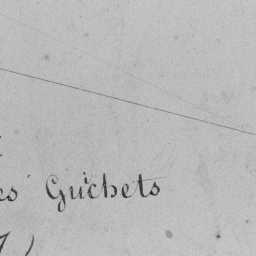 es Guichets
)